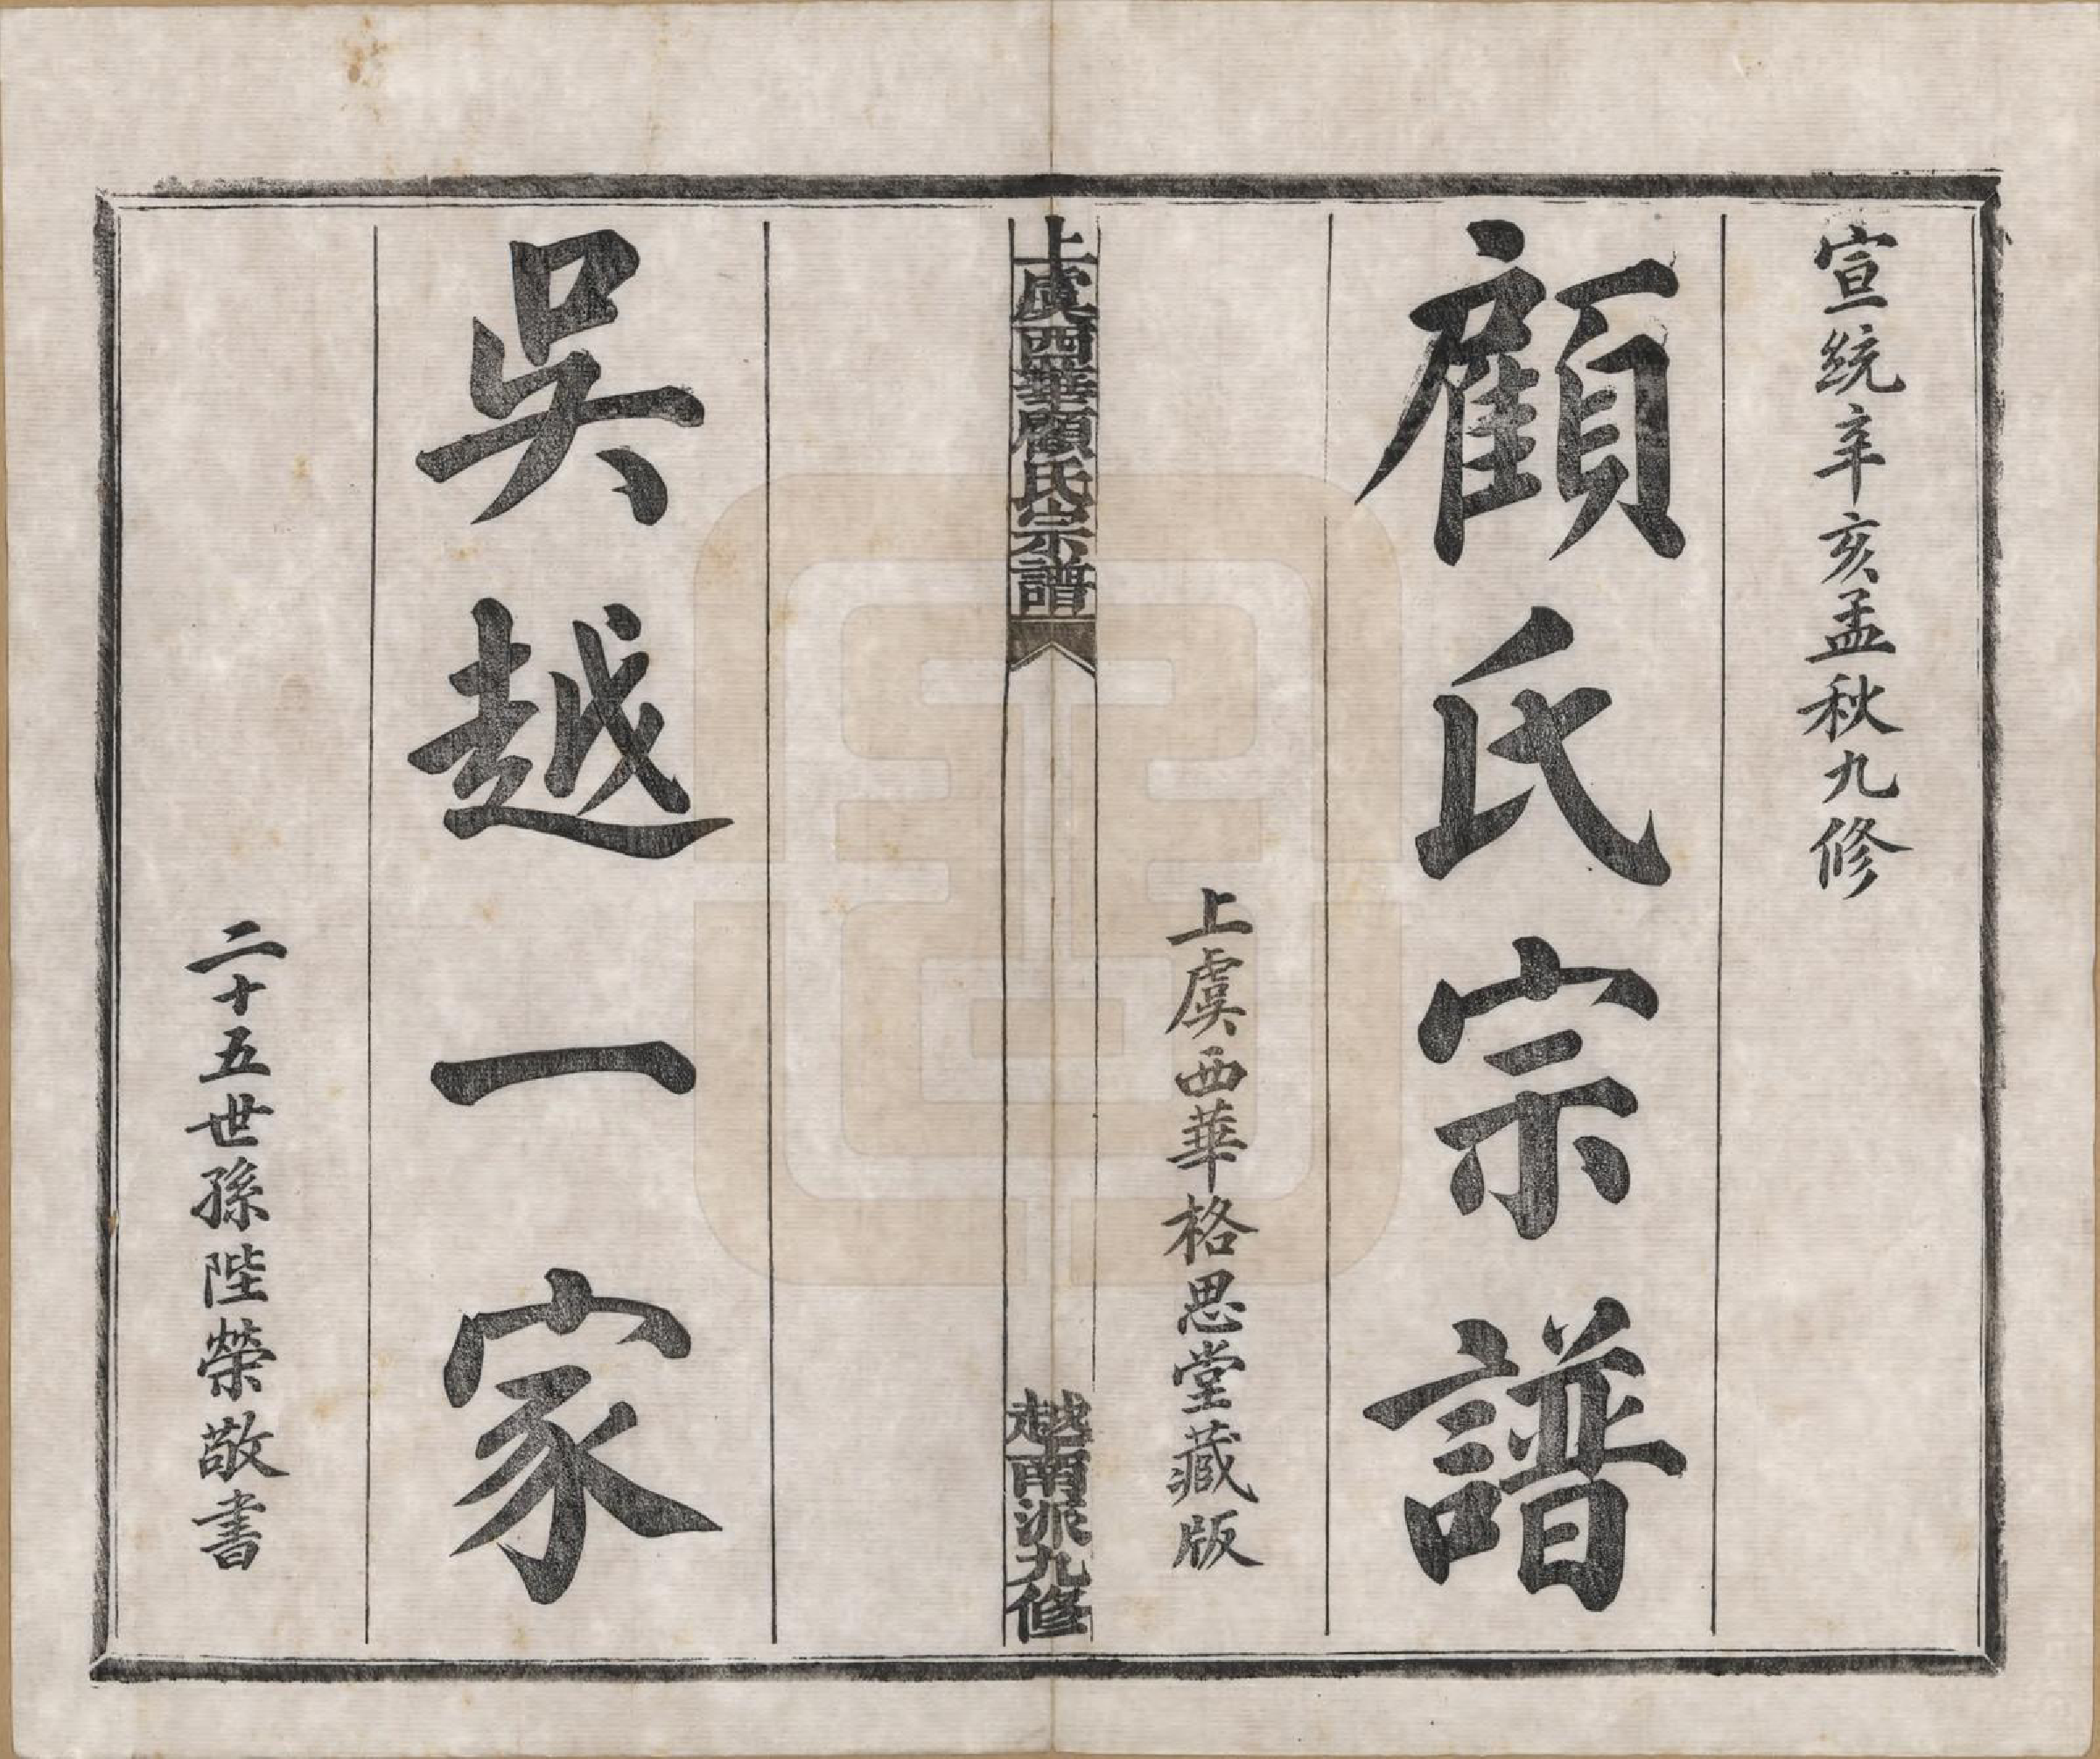 宣統辛亥孟秋九修
顧氏宗譜
上虞西華格思堂藏版
上虞西華顧氏宗譜
越南派九修
吳越一家
二十五世孫陛榮敬書